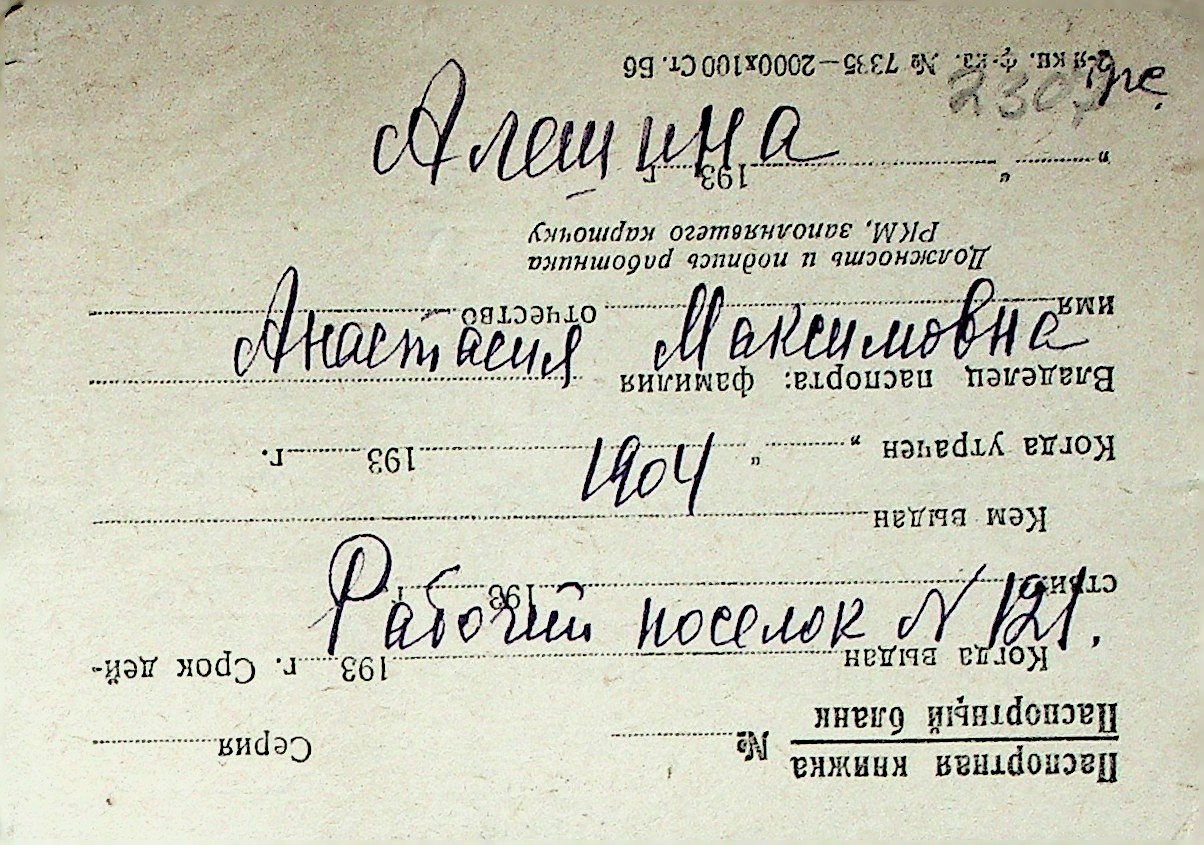 2307
Алешина
Анастасия Максимовна
1904
Рабочий поселок N 121.
Паспортная книжка № Серия
Паспортный бланк
Когда выдан 193 г. Срок дей-
ствия 193 г.
Кем выдан
Когда утрачен „ “ 193 г.
Владелец паспорта: фамилия
имя отчество
Должность и подпись работника
РКМ, заполнявшего карточку
„ “ 193 г.
2-я кн. ф-ка. № 7335—2000х100 Ст. Б6